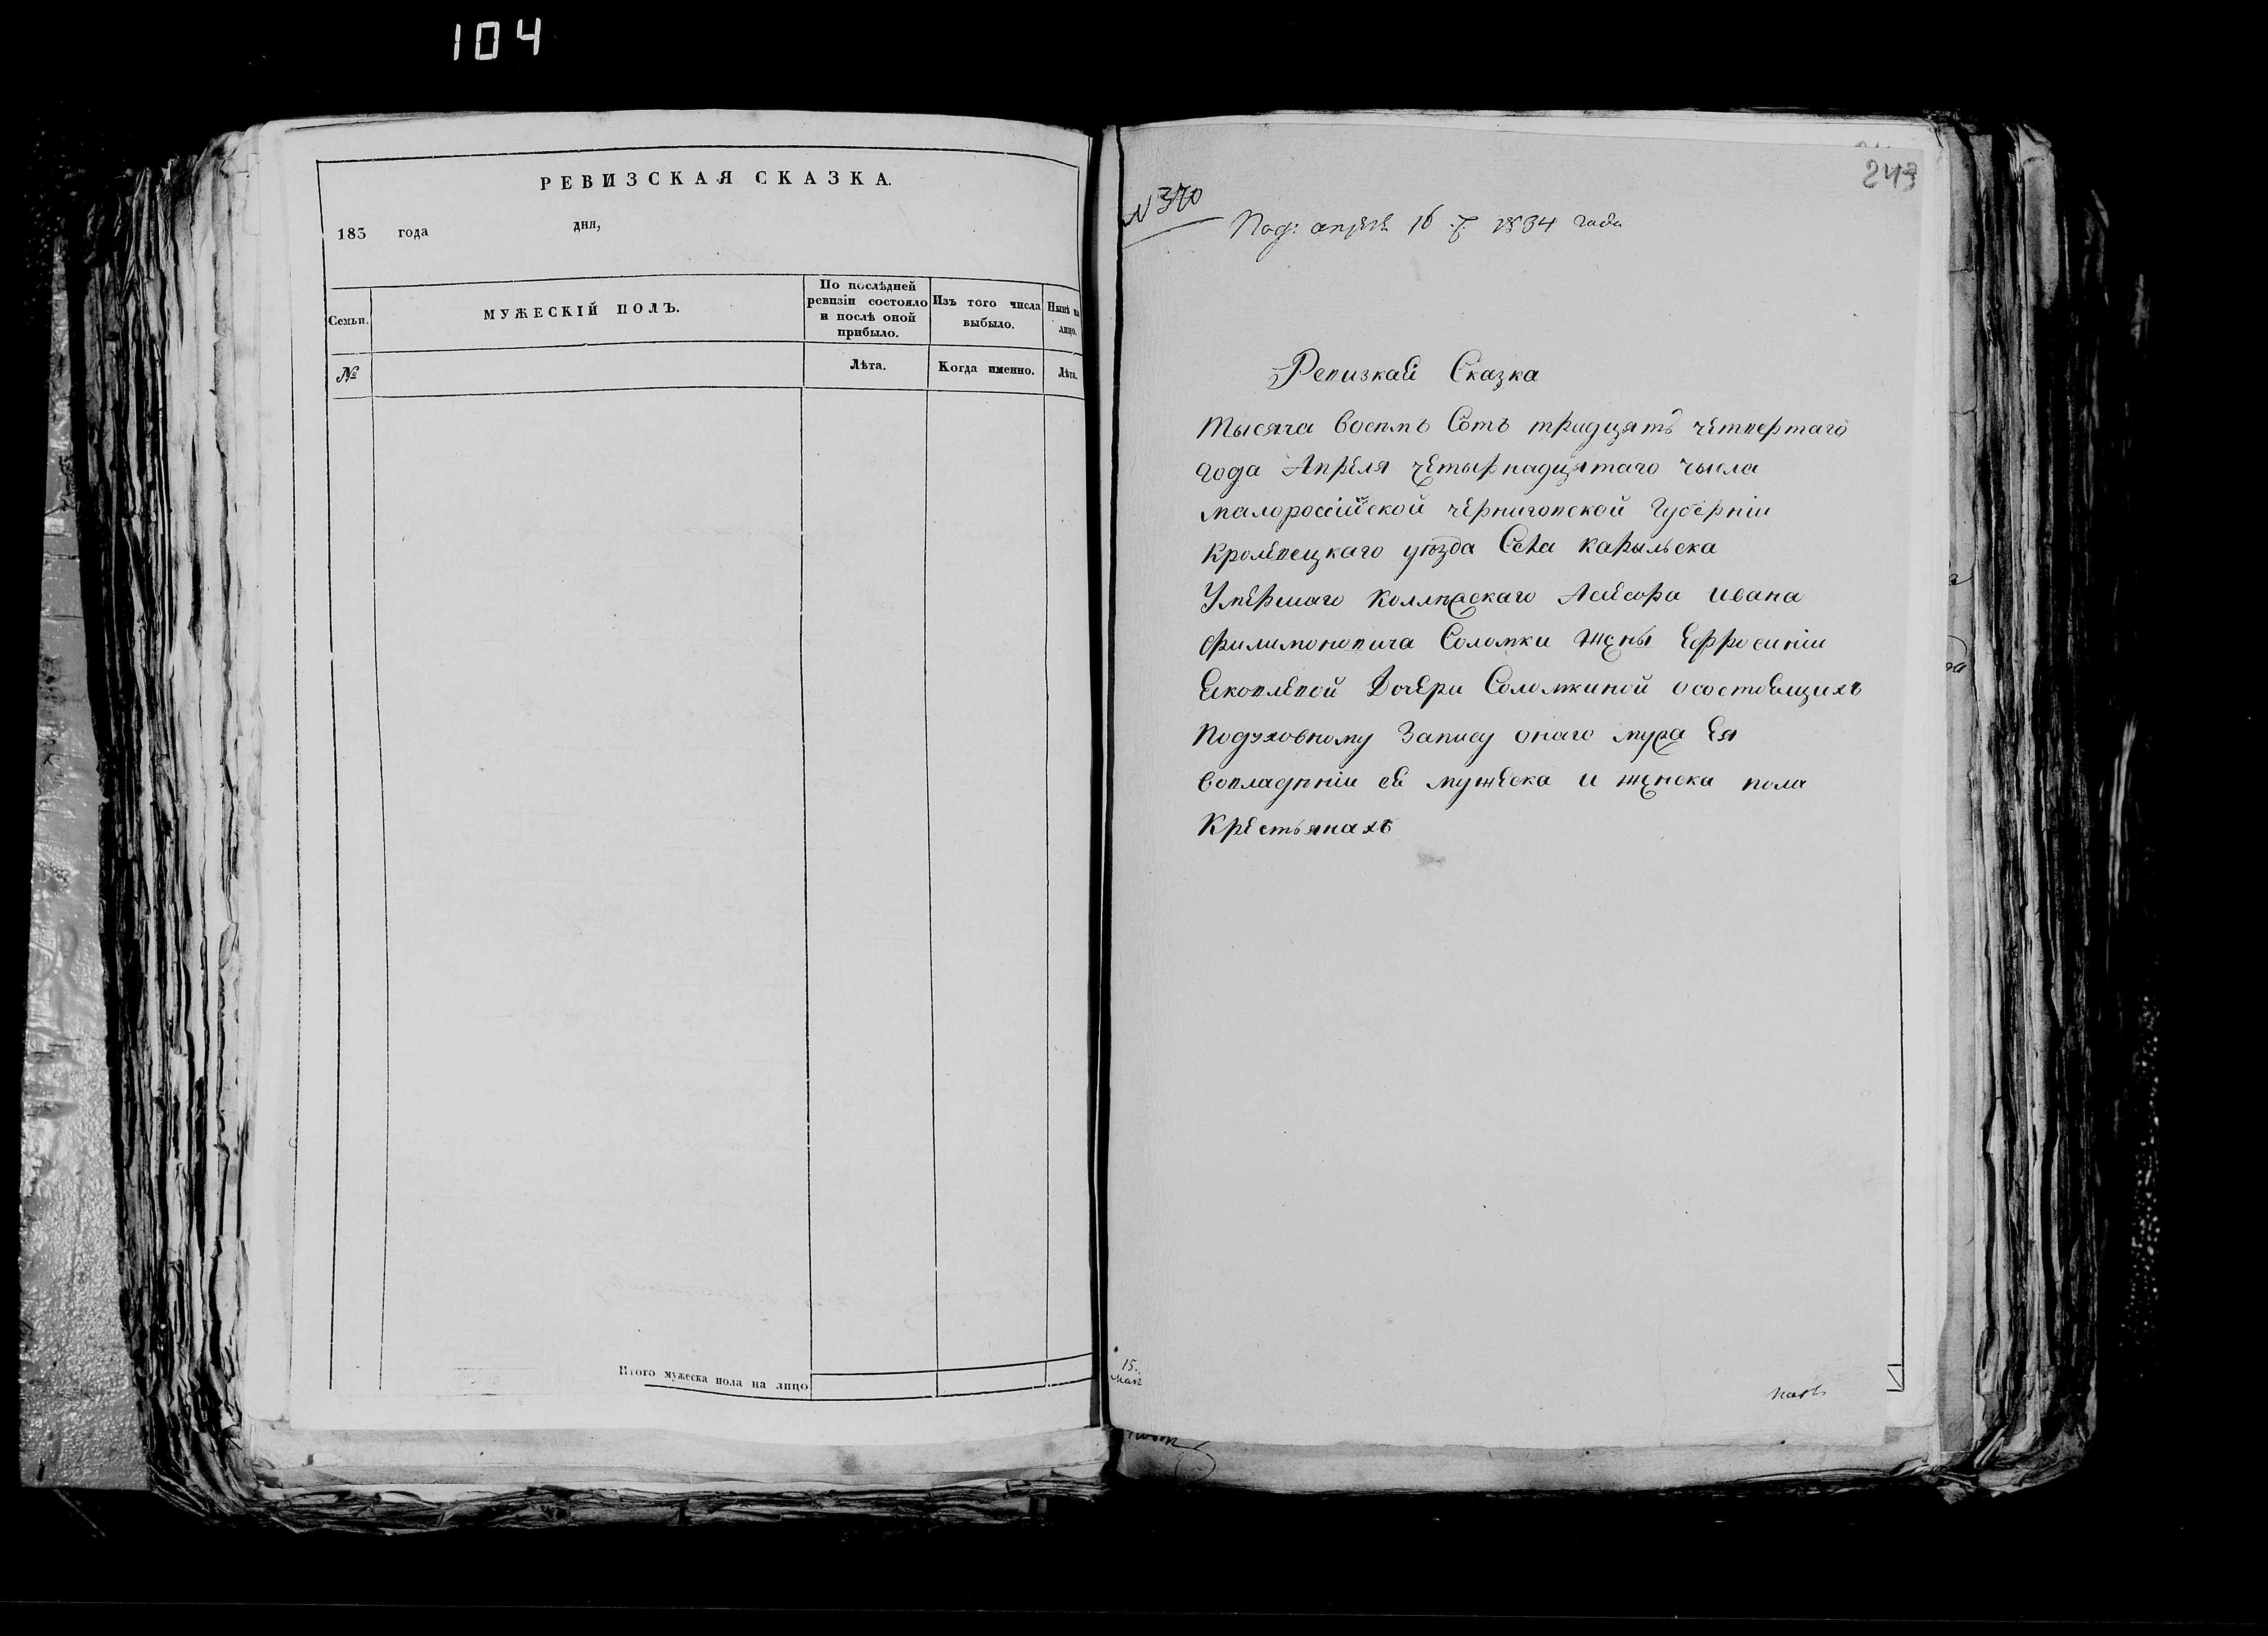 104
РЕВИЗСКАЯ СКАЗКА.
183 года дня,
Семьи.
МУЖЕСКІЙ ПОЛЪ.
По послѣдней ревизіи состояло и послѣ оной прибыло.
Изъ того числа выбыло.
Нынѣ на лицо.
№
Лѣта.
Когда именно.
Лѣта.
Итого мужеска пола на лицо
243
N 370
Под: апреля 16 1834 года
Ревизкаѣ Сказка
Тысяча восемъ Сотъ тридцять четвертаго
года Апреля четырнадцятаго числа
малороссійской черниговской Губерніи
Кролевецкаго уѣзда Села карыльска
Умершаго Коллежскаго Асесора ивана
филимоновича Соломки жены Ефросиніи
Яковлевой Дочери Соломкиной осостоящихъ
Подуховному Запису онаго мужа Ея
вовладѣніи ея мужеска и женска пола
Крестьянахъ
15.